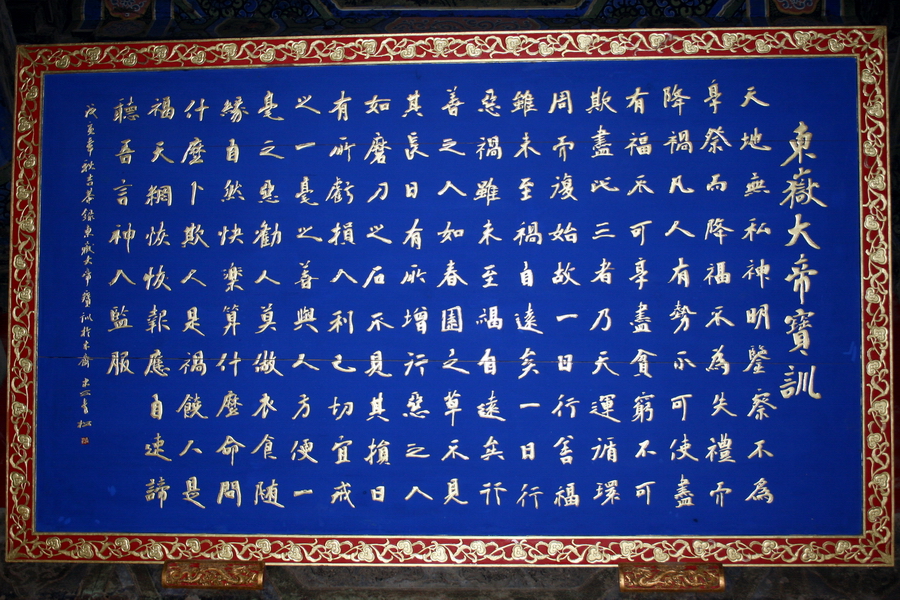 東嶽大帝寶訓
天地無私神明鑒察不為
享祭而降福不為失禮而
降禍凡人有勢不可使盡
有福不可享盡貪窮不可
欺盡此三者乃天運循環
周而復始故一日行善福
雖未至禍自遠矣一日行
惡禍雖未至福自遠矣行
善之人如春園之草不見
其長日有所增行惡之人
如磨刀之石不見其損日
有所虧損人利己切宜戒
之一毫之善與人方便一
毫之惡勸人莫做衣食随
緣自然快樂算什麼命問
什麼卜欺人是禍饒人是
福天網恢恢報應自速諦
聽吾言神人監服
戊寅年秋吉恭錄東嶽大帝寶訓於